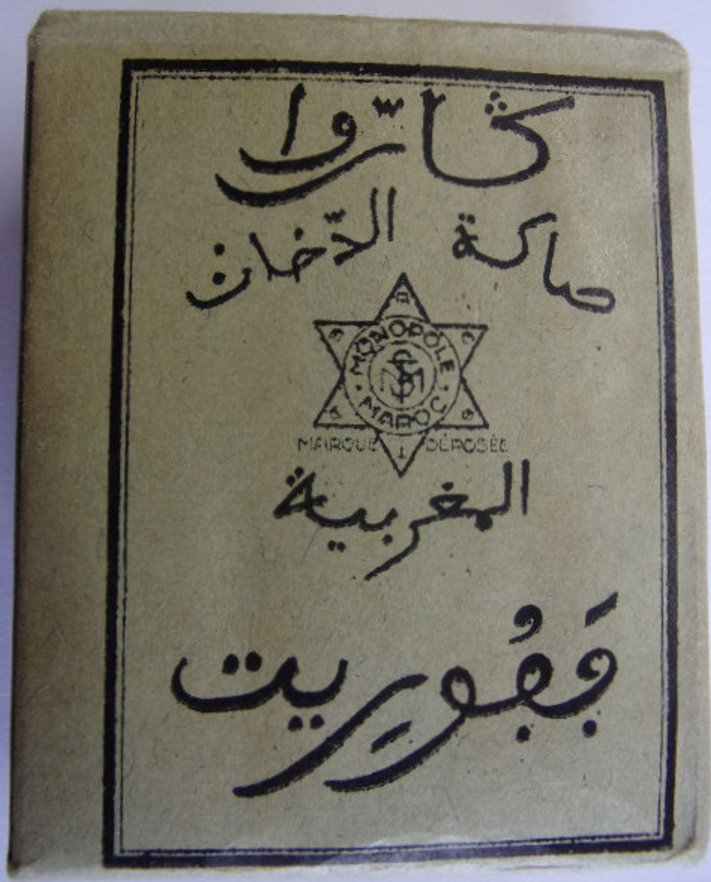 ڭارّوا
صاكة الدّخان
MONOPOLE
MAROC
MARQUE DÉPOSÉE
المغربية
ڢَڢُورِيت